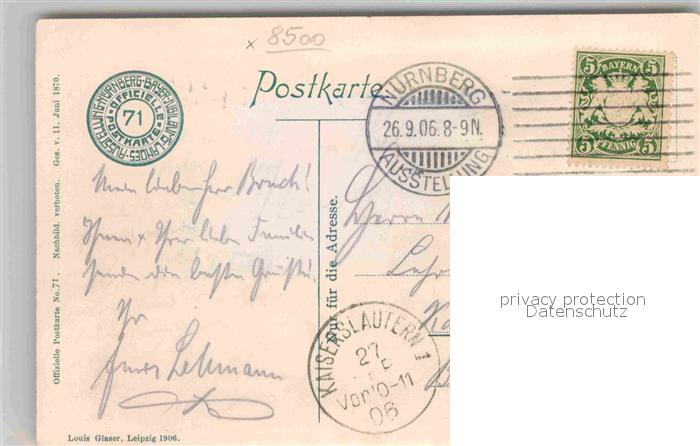 x 8500
Postkarte
BAYER. JUBILÄUMS-LANDES-AUSSTELLUNG NÜRNBERG
OFFICIELLE POSTKARTE
71
NÜRNBERG
26.9.06.8-9N.
(AUSSTELLUNG)
5 BAYERN 5
5 PFENNIG 5
Mein lieber Herr Bruch!
Ihnen & Ihrer lieben Familie
senden die besten Grüße
Ihr
Lehmann
Nur für die Adresse.
Herrn
Lehr
Ka
KAISERSLAUTERN 1
27
Vor 10-11
06
privacy protection
Datenschutz
Offizielle Postkarte No. 71. Nachbild. verboten. Ges. v. 11. Juni 1870.
Louis Glaser, Leipzig 1906.